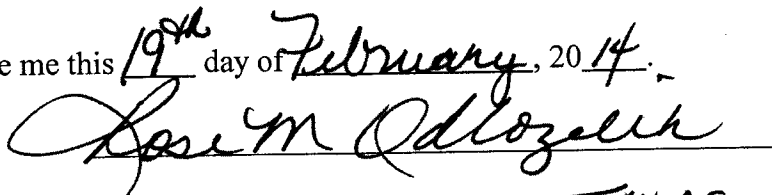 e me this 19th day of February, 2014.
Rose M Odlozelik